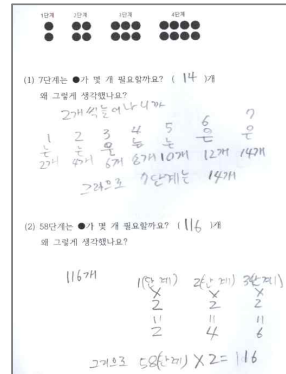 1단계 2단계 3단계 4단계
(1) 7단계는 ●가 몇 개 필요할까요? ( 14 )개
왜 그렇게 생각했나요?
2개씩 늘어나니까
1 2 3 4 5 6 7
는 는 은 는 는 은 은
2개 4개 6개 8개 10개 12개 14개
그러므로 7단계는 14개
(2) 58단계는 ●가 몇 개 필요할까요? ( 116 )개
왜 그렇게 생각했나요?
116개 1(단계) 2(단계) 3(단계)
× × ×
2 2 2
= = =
2 4 6
그러므로 58(단계) × 2 = 116